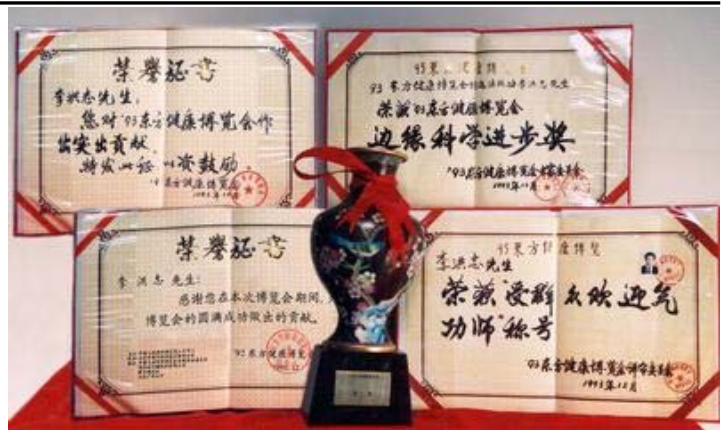 荣誉证书
李洪志先生:
您对'93东方健康博览会作
出突出贡献,
特发此证 以资鼓励。
东方健康博览会
1993年12月
93东方健康博览
荣获'93东方健康博览会
边缘科学进步奖
'93东方健康博览会
1993年12月
荣誉证书
李洪志先生:
感谢您在本次博览会期间,
博览会的圆满成功做出的贡献。
东方健康博览
93东方健康博览
李洪志先生
荣获"受群众欢迎气
功师"称号
93东方健康博览会评审委员会
1993年12月